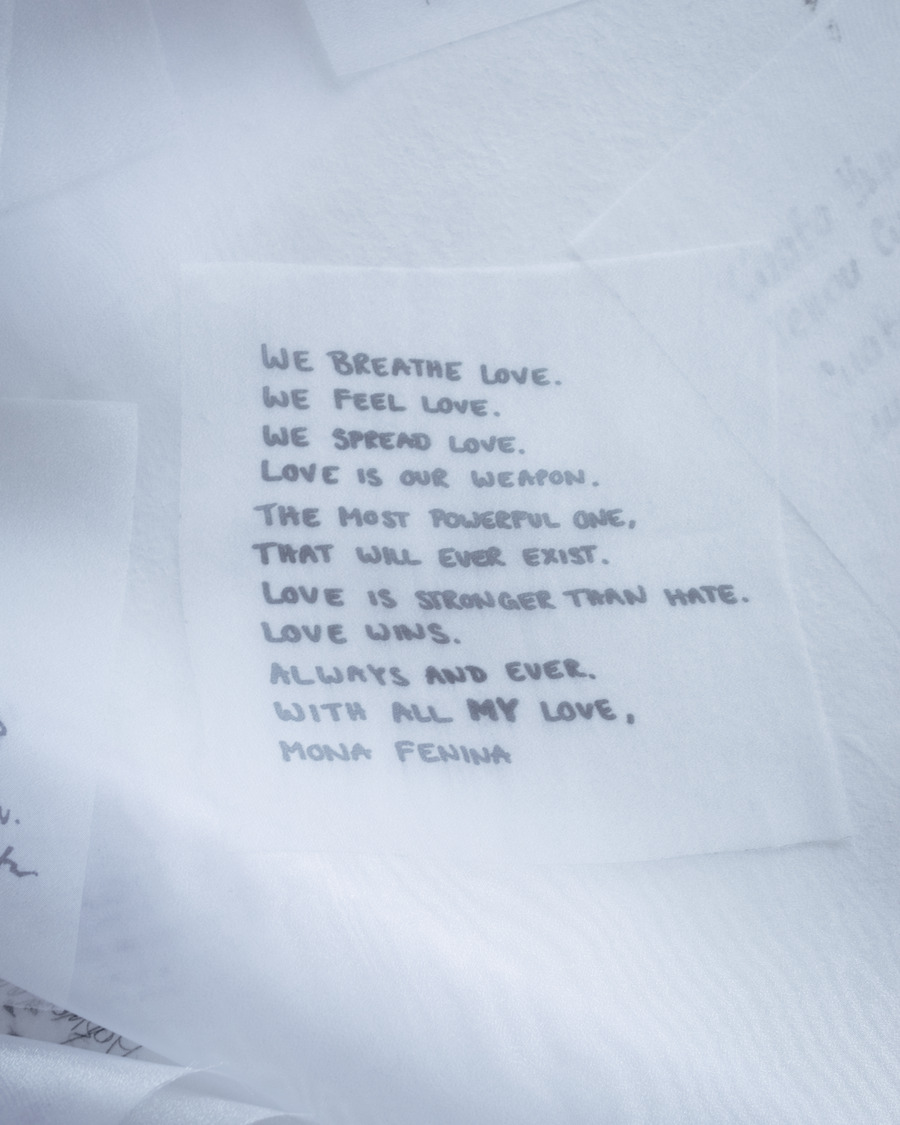 WE BREATHE LOVE.
WE FEEL LOVE.
WE SPREAD LOVE.
LOVE IS OUR WEAPON.
THE MOST POWERFUL ONE,
THAT WILL EVER EXIST.
LOVE IS STRONGER THAN HATE.
LOVE WINS.
ALWAYS AND EVER.
WITH ALL MY LOVE,
MONA FENINA